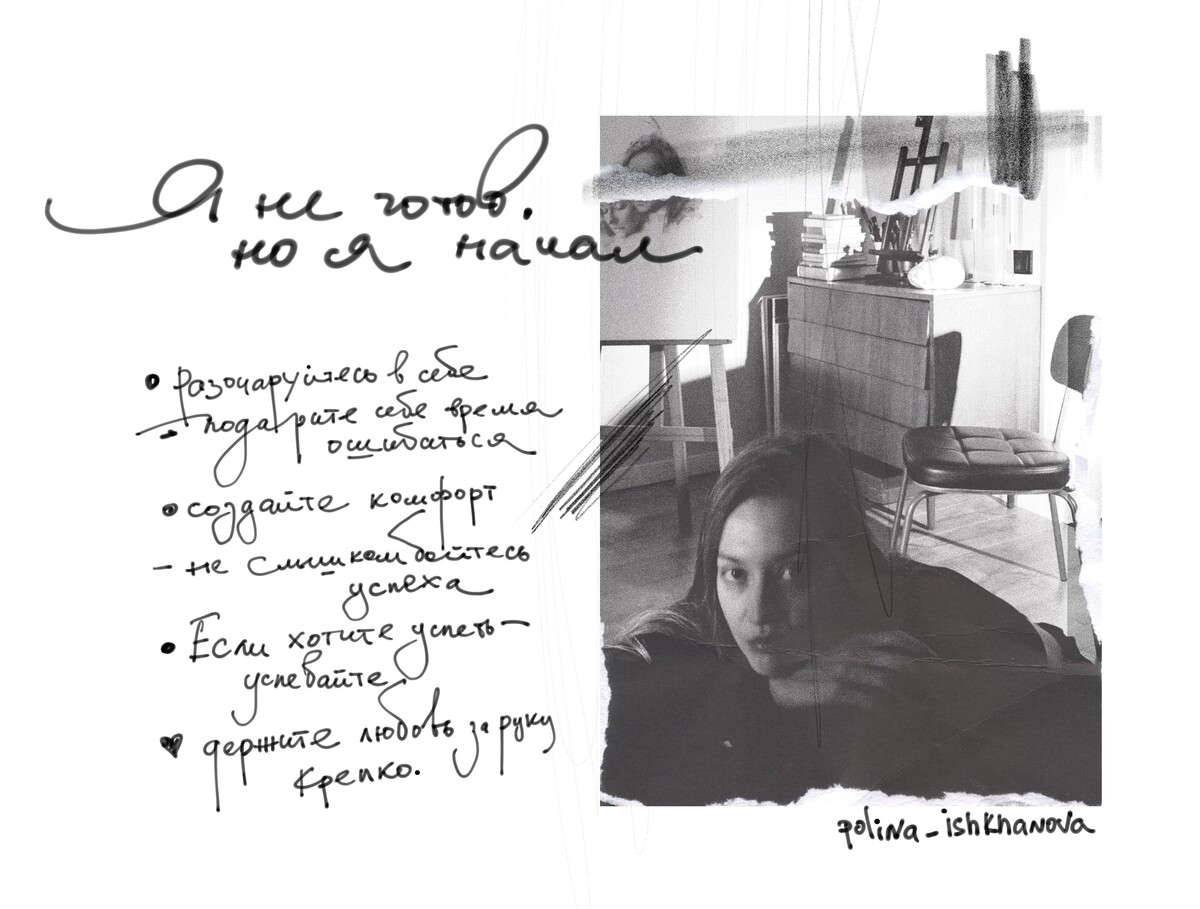 Я не готов.
но я начал
• разочаруйтесь в себе
- подарите себе время
ошибаться
• создайте комфорт
- не слишком бойтесь
успеха
• Если хотите успеть -
успевайте
♥ держите любовь за руку
крепко.
polina_ishkhanova